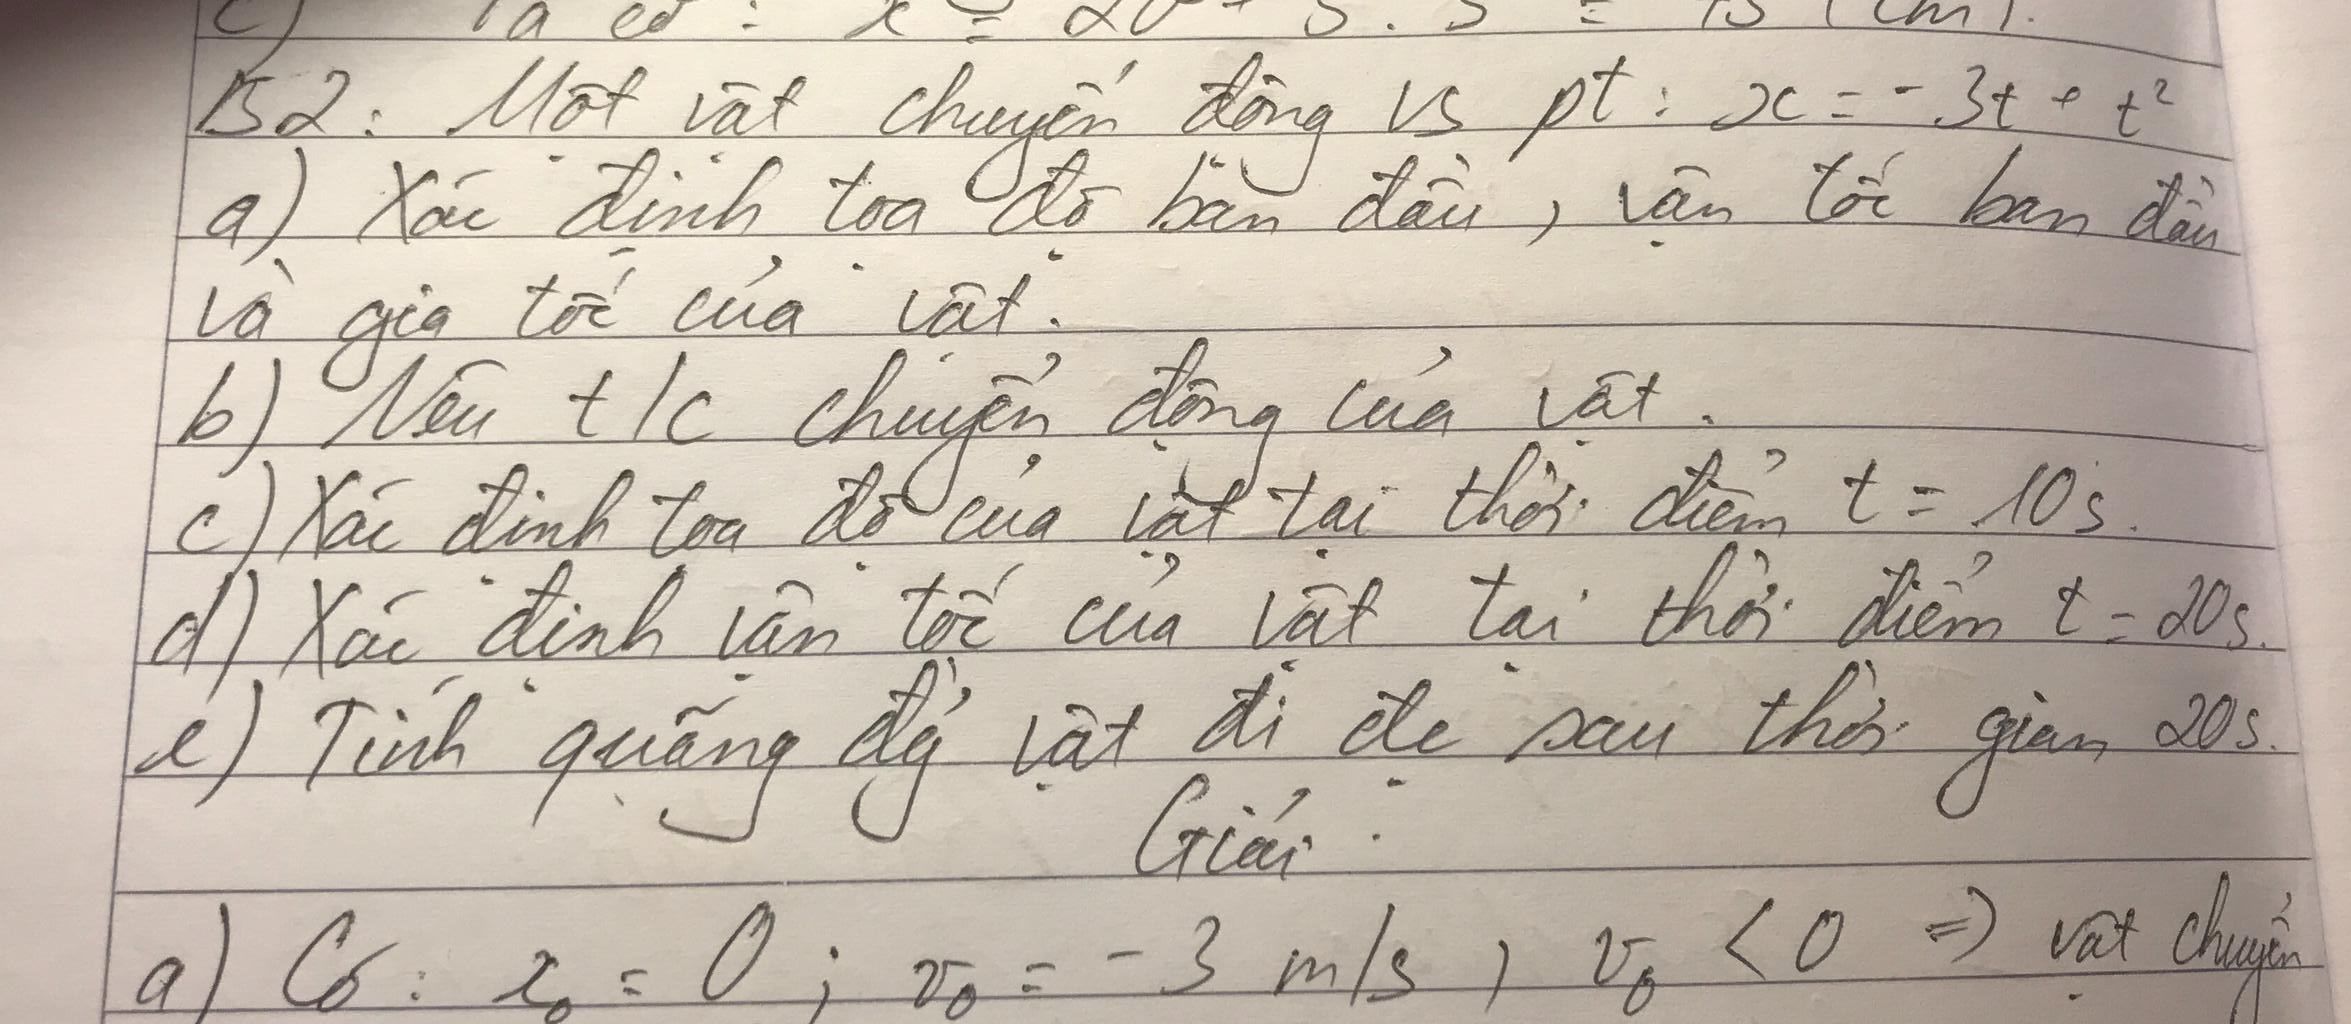 c) Ta có : x = 20 + 5 . 5 = 45 (cm).
B2 : Một vật chuyển động vs pt : x = - 3t + t²
a) Xác định tọa độ ban đầu , vận tốc ban đầu
và gia tốc của vật .
b) Nêu t/c chuyển động của vật .
c) Xác định tọa độ của vật tại thời điểm t = 10s .
d) Xác định vận tốc của vật tại thời điểm t = 20s .
e) Tính quãng vật đi đc sau thời gian 20s .
Giải :
a) Có : x₀ = 0 ; v₀ = - 3 m/s , v₀ < 0 => vật chuyển